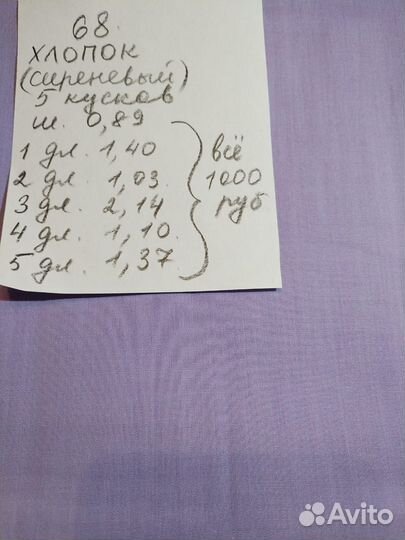 68.
ХЛОПОК
(сиреневый)
5 кусков
ш. 0,89
1 дл. 1,40
2 дл. 1,03
3 дл. 2,14
4 дл. 1,10.
5 дл. 1,37
всё
1000
руб
Avito